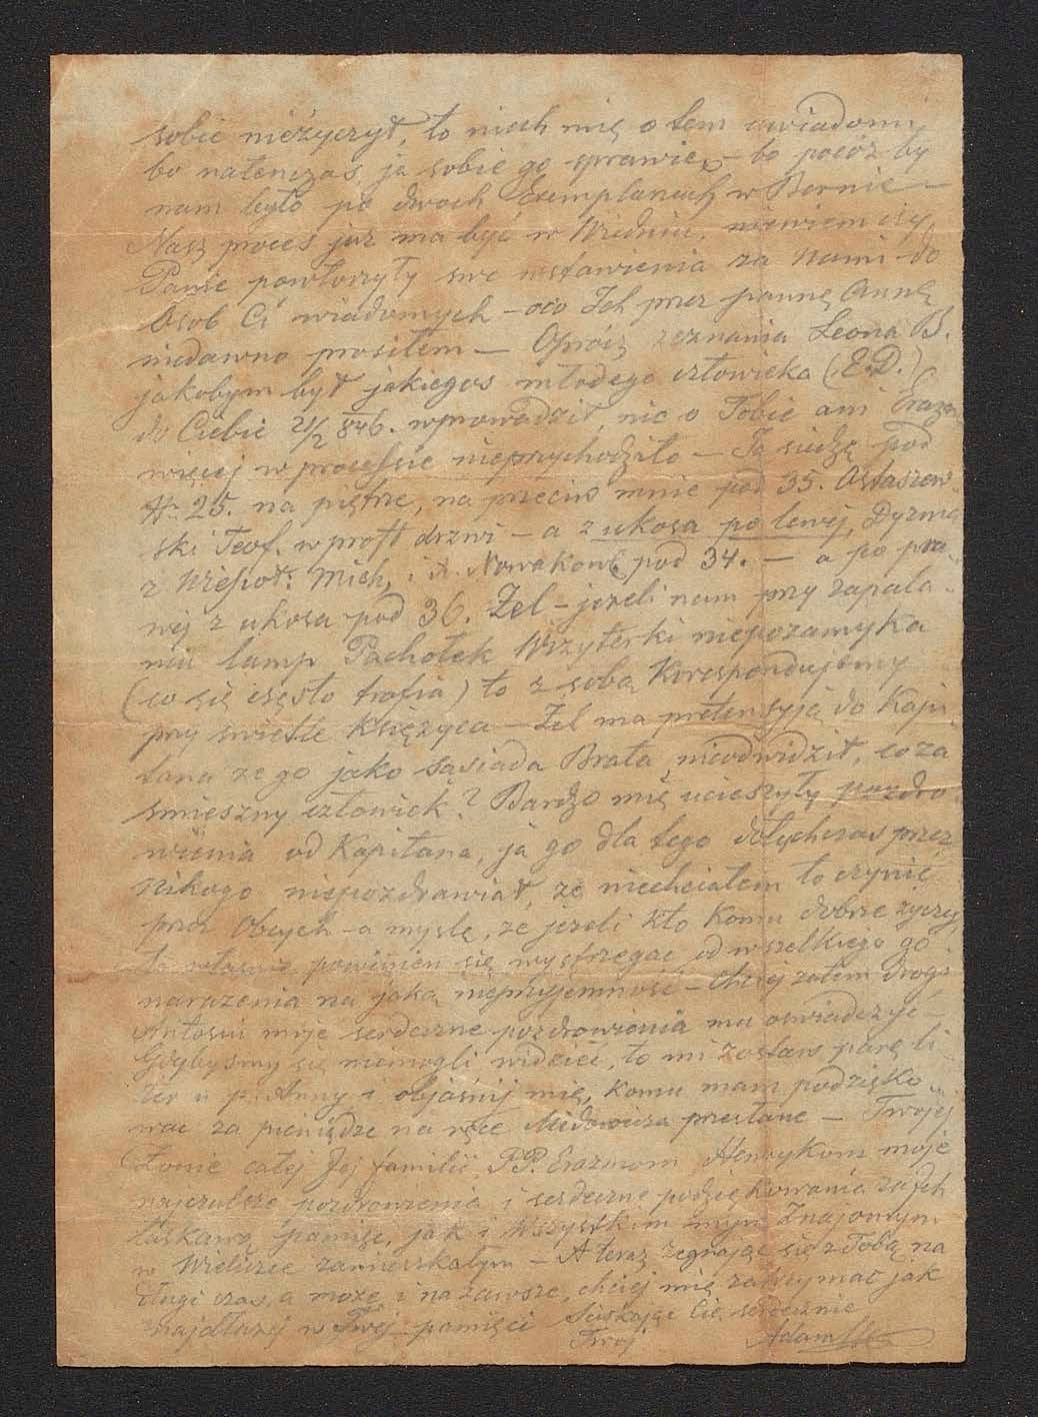 sobie nieżyczył, to niech mię o tem uwiadomi,
bo natenczas ja sobie go sprawię, – bo pocóż by
nam było po dwoch Exemplarzach w Bernie –
Nasz proces już ma być w Wiedniu, niewiem czy
Panie powtorzyły swe wstawienia za nami do
Osob Ci wiadomych – oco Ich przez pannę Annę
niedawno prosiłem – Oprócz zeznania Leona B.
jakobym był jakiegos młodego człowieka (E.D.)
do Ciebie 21/2 846. wprowadził, nic o Tobie ani Erazm
więcej w processie nieprzychodziło – Ja siedzę pod
Nr 25. na piętrze, na przeciw mnie pod 35. Ostaszew
ski Teof. wprost drzwi – a z ukosa po lewej, Dyzma
z Mich. i A. Nowakow. pod 34. – a po pra
wej z ukosa pod 36. Żel – jezeli nam przy zapala
niu lamp Pachołek Wizyterki niepozamyka
(co się często trafia) to z sobą Korespondujemy
przy swietle Księżyca – Żel ma pretensyją do Kapi
tana ze go jako Sąsiada Brata nieodwidził, coza
smieszny człowiek? Bardzo mię ucieszyły pozdro
wienia od Kapitana, ja go dla tego dotychczas przez
nikogo niepozdrawiał, że niechciałem to czynić
przez Obcych – a myslę, że jezeli kto Komu dobrze życzy,
to własnie powinien się wystrzegać od wszelkiego go
narazenia na jaką nieprzyjemność – Chciej zatem drogi
Antosiu moje serdeczne pozdrowienia mu oswiadczyć –
Gdybysmy się niemogli widzieć, to mi zostaw parę li
ter u p. Anny i objaśnij mię, komu mam podzięko
wac za pieniądze na ręce przesłane – Twojej
Żonie całej Jej familii, PP. Erazmom Henrykom moje
najczulsze pozdrowienia i serdeczne podziękowania za Ich
łaskawą pamięć, jak i Wszystkim mym Znajomym
w Wieliczce zamieszkałym – A teraz żegnając się z Tobą na
długi czas, a może i na zawsze, chciej mię zatrzymać jak
najdłużej w Twej pamięci Sciskając Cię serdecznie
Twoj Adam